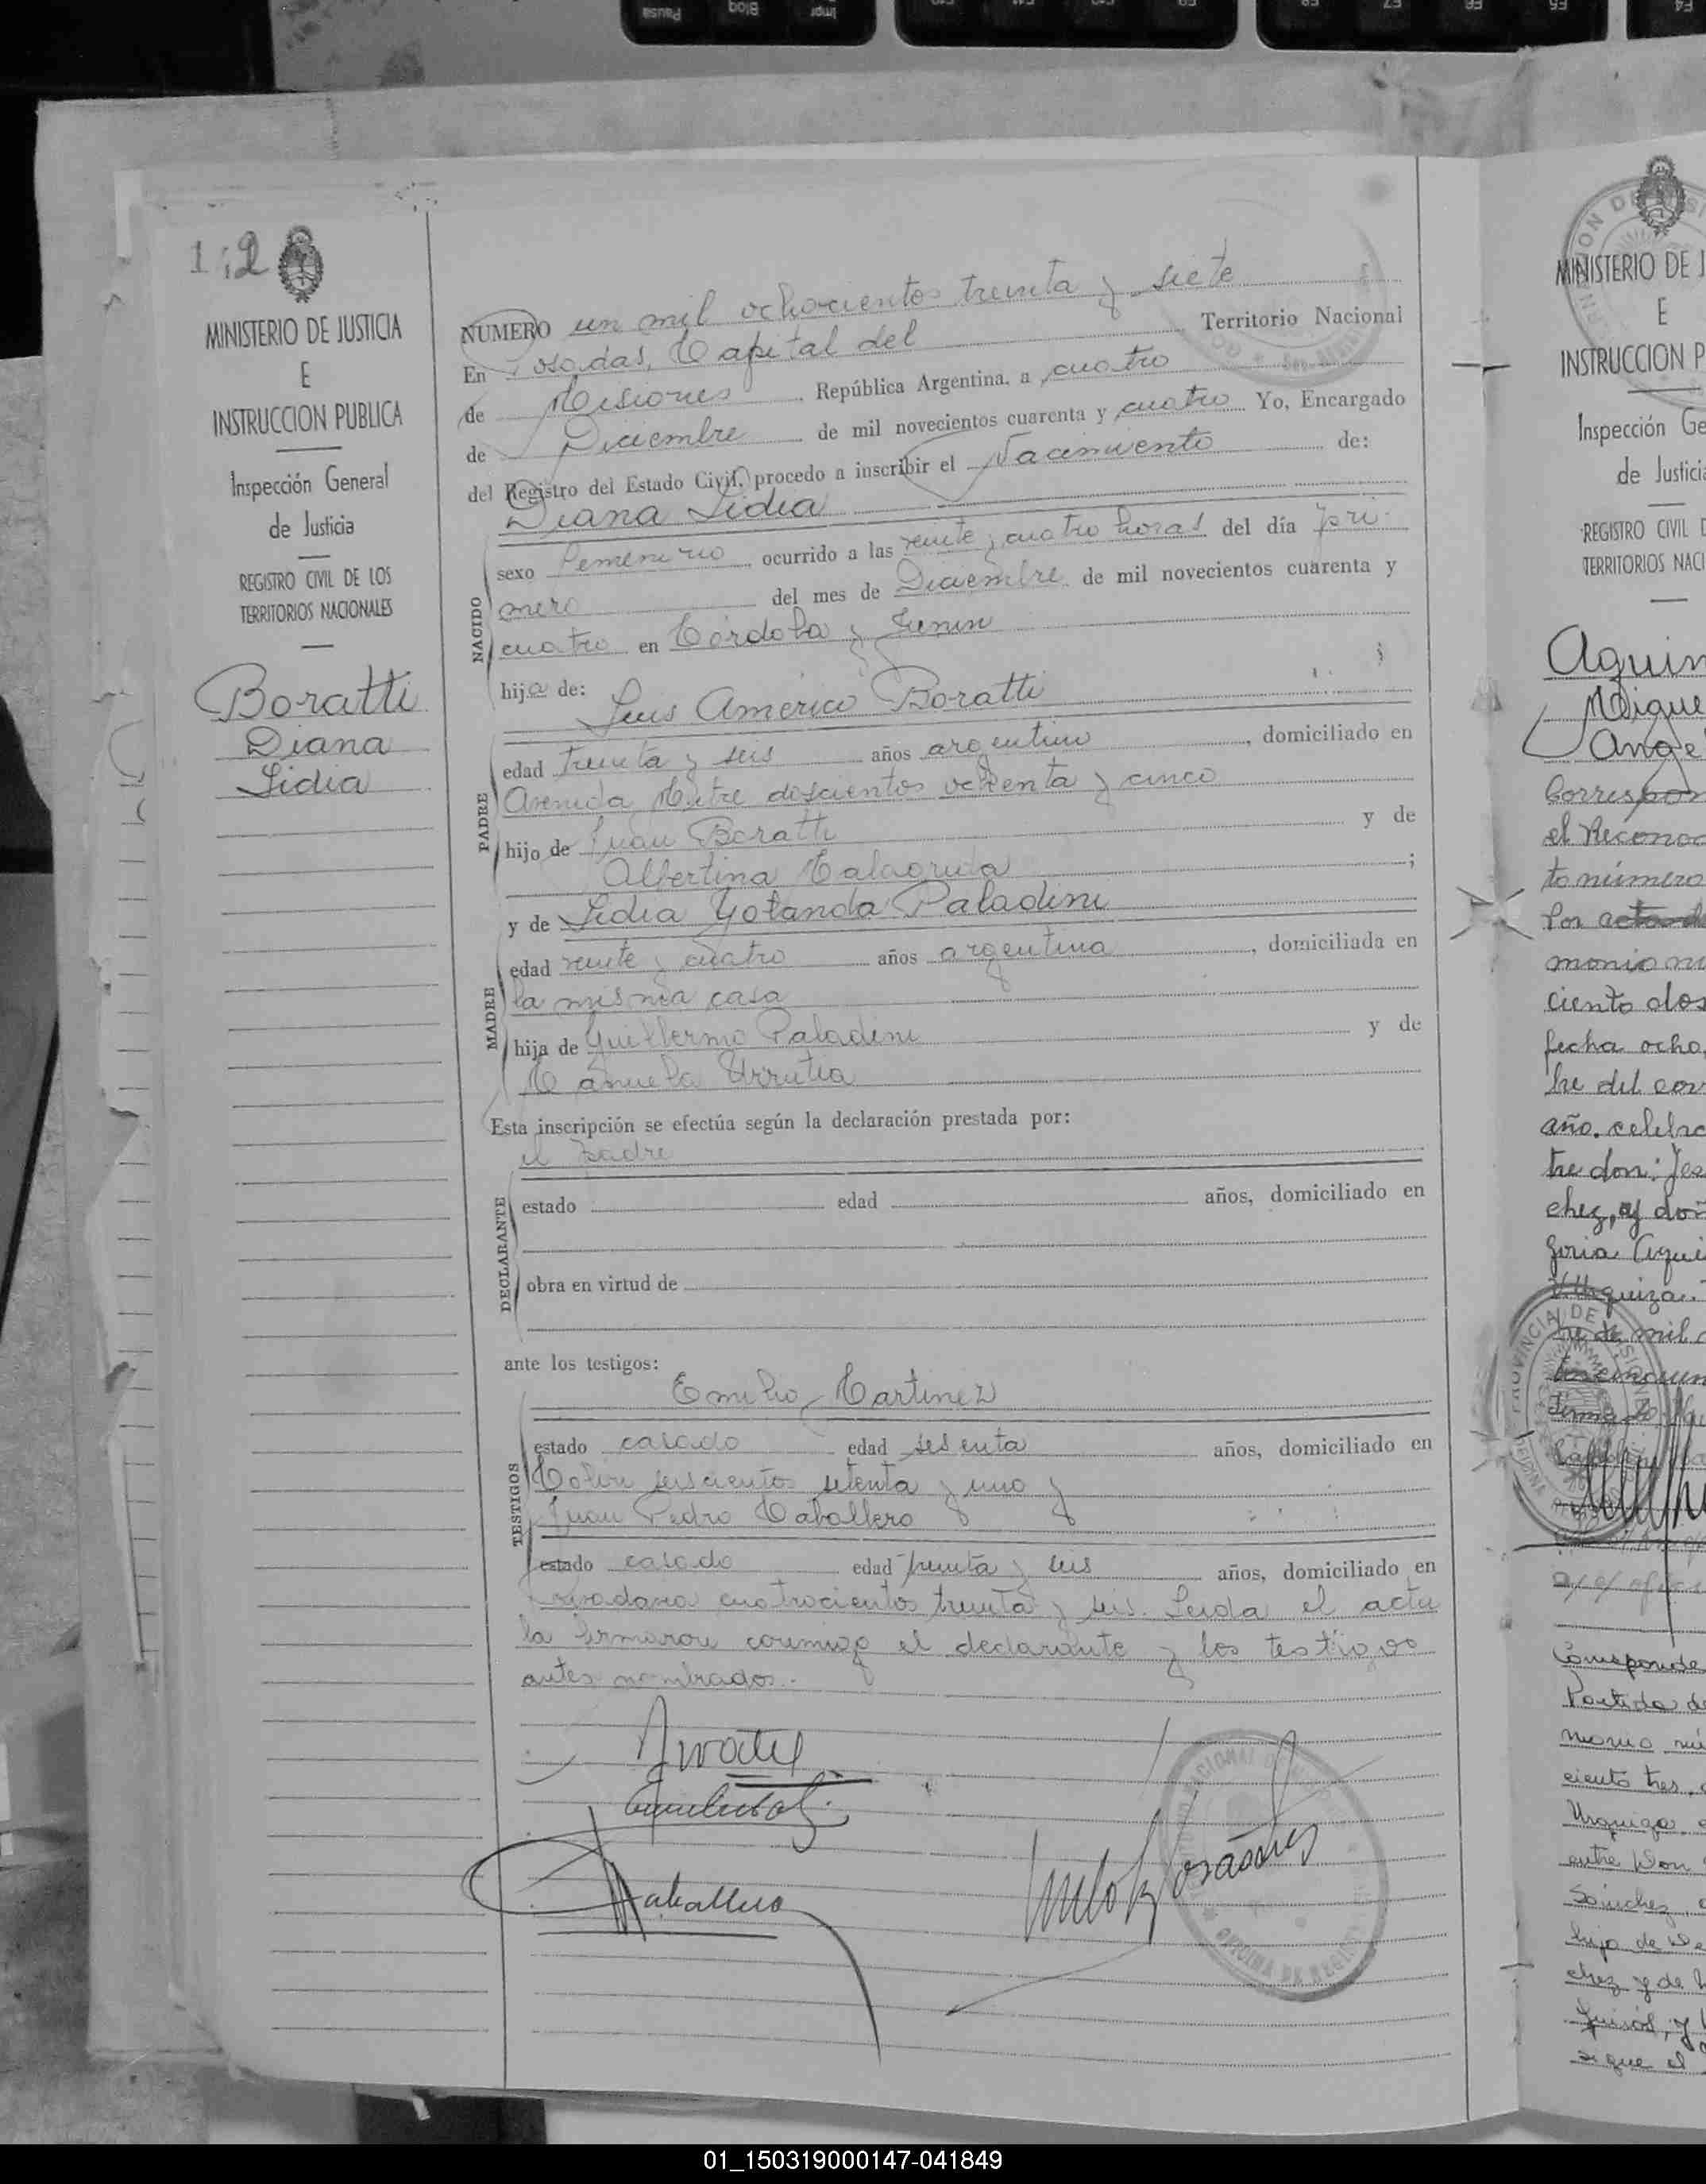 Pausa
Bloq
Impr
F9
F8
F7
F6
F5
F4
1:2
MINISTERIO DE JUSTICIA
E
INSTRUCCION PUBLICA
Inspección General
de Justicia
REGISTRO CIVIL DE LOS
TERRITORIOS NACIONALES
Boratti
Diana
Lidia
NUMERO un mil ochocientos treinta y siete
En Posadas, Capital del Territorio Nacional
de Misiones República Argentina, a cuatro
de Diciembre de mil novecientos cuarenta y cuatro Yo, Encargado
del Registro del Estado Civil, procedo a inscribir el Nacimiento de:
Diana Lidia
NACIDO
sexo femenino ocurrido a las veinte y cuatro horas del día pri-
mero del mes de Diciembre de mil novecientos cuarenta y
cuatro en Córdoba y Junin
hija de:
Luis Américo Boratti
PADRE
edad treinta y seis años argentino, domiciliado en
Avenida Mitre doscientos ochenta y cinco
hijo de Juan Boratti y de
Albertina ;
y de Lidia Yolanda Paladini
MADRE
edad veinte y cuatro años argentina, domiciliada en
la misma casa
hija de Guillermo Paladini y de
Manuela Urrutia
Esta inscripción se efectúa según la declaración prestada por:
el padre
DECLARANTE
estado edad años, domiciliado en
obra en virtud de
ante los testigos:
Emilio Martinez
TESTIGOS
estado casado edad sesenta años, domiciliado en
Colon seiscientos setenta y uno y
Juan Pedro Caballero
estado casado edad treinta y seis años, domiciliado en
Rivadavia cuatrocientos treinta y seis. Leida el acta
la firmaron conmigo el declarante y los testigos
antes nombrados.-
Caballero
OFICINA DE REGISTRO
MINISTERIO DE J
E
INSTRUCCION P
Inspección Ge
de Justicia
REGISTRO CIVIL D
TERRITORIOS NACI
Aquin
Migue
Angel
Correspon
el Reconoc
to número
Por acta d
monio nu
ciento dos
fecha ocho
bre del cor
año, celebra
tre don: Jes
chez, y doñ
goria Aqui
Urquiza.
Corresponde
Partida de
monio nú
ciento tres,
Urquiza,
entre Don
Sánchez,
hijo de De
chez y de
sigue el
01_150319000147-041849